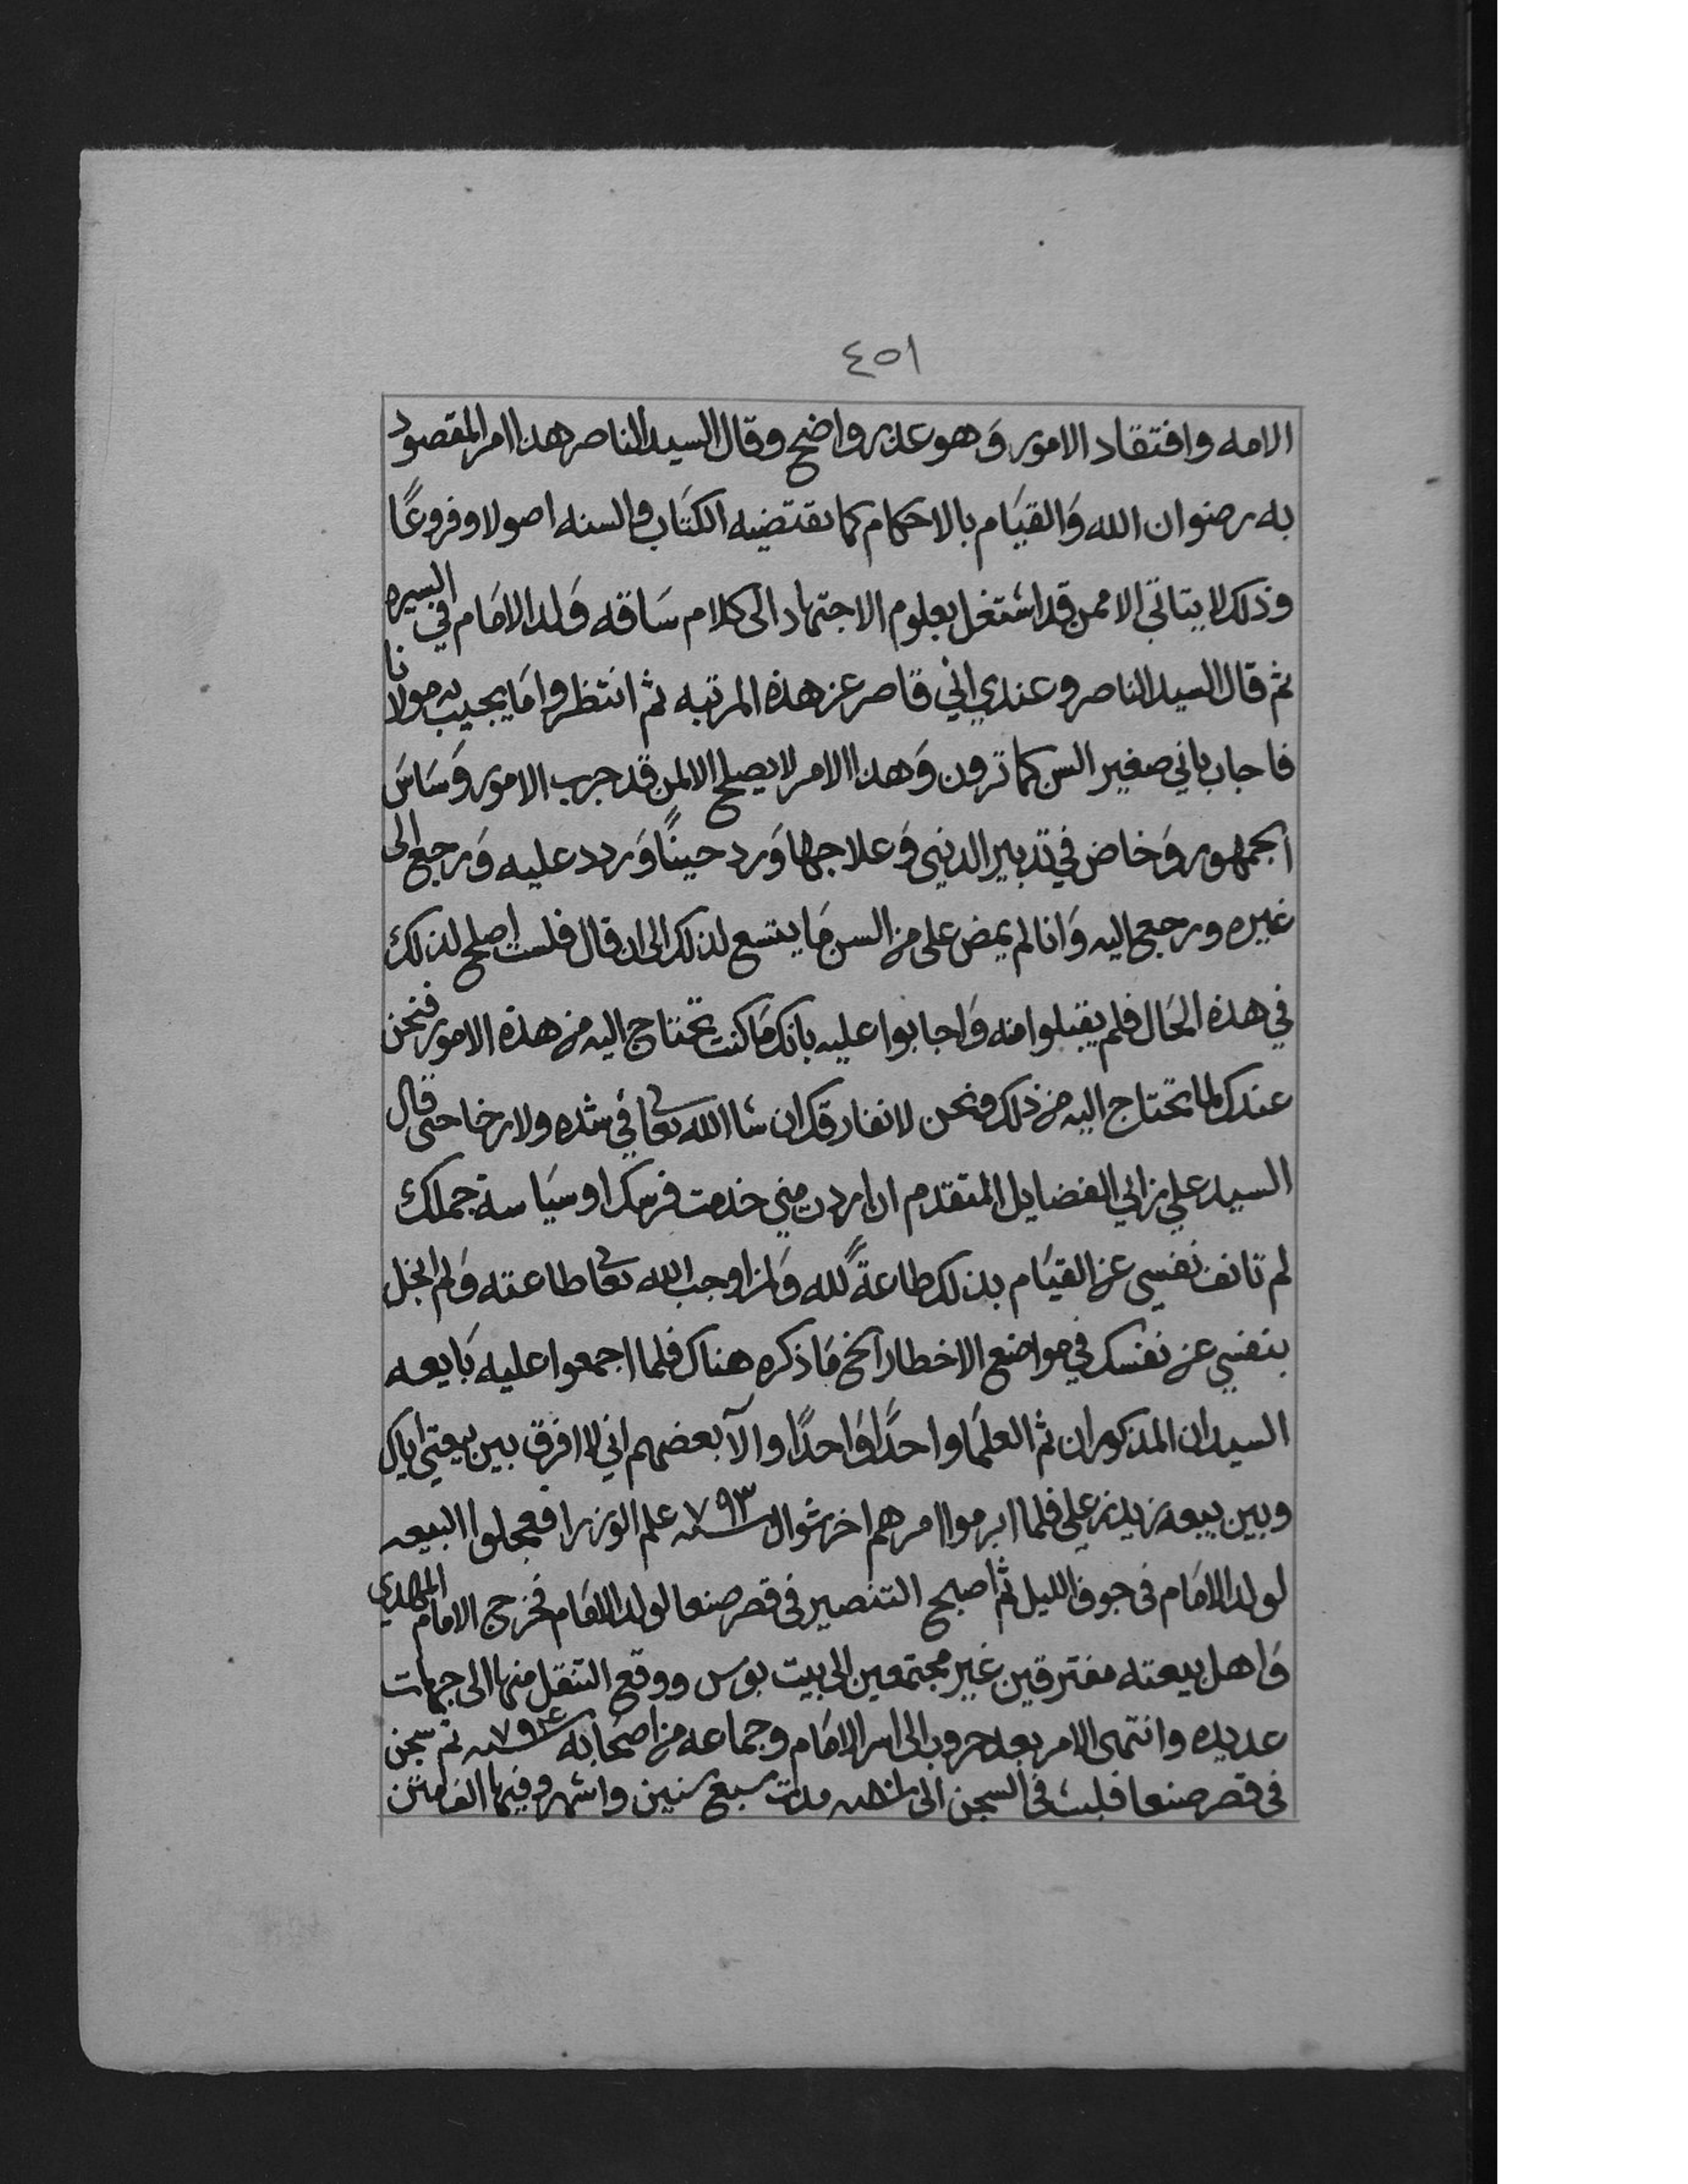 ٤٥١
الامه وافتقاد الامور وَهو عذر واضح وقال السيد الناصر هذا امر المقصود
به رضوان الله وَالقيَام بالاحكام كما يقتضيه الكتَاب والسنه اصولا وفروعًا
وذلك لا يتاتى الا ممن قد اشتغل بعلوم الاجتهاد الى كلام سَاقه وَلد الامَام في السيره
ثم قال السيد الناصر وعندي اني قاصر عن هذه المرتبه ثم انتظروا مَا يجيب به مولانا
فاجاب باني صغير السن كما ترون وَهذا الامر لا يصلح الا لمن قد جرب الامور وَسَاسَ
الجمهور وَخاض في تدبير الدنيى وَعلاجها وَرد حينًا وَردد عليه وَرجع الى
غيره ورجع اليه وَانا لم يمض على من السن مَا يتسع لذلك الى ان قال فلست اصلح لذلك
في هذه الحَال فلم يقبلوا منه وَاجابوا عليه بانك مَا كنت تحتاج اليه من هذه الامور فنحن
عندك لما تحتاج اليه من ذلك ونحن لا نفارقك ان شا الله تعا في شده ولا رخا حتى قال
السيد علي بن ابي الفضايل المتقدم ان اردت مني خدمت فرسك او سيَاسة جملك
لم تانف نفسي عن القيَام بذلك طاعةً لله وَلمن اوجب الله تعا طاعته وَلم ابخل
بنفسي عن نفسك في مواضع الاخطار الخ مَا ذكره هناك فلما اجمعوا عليه بَايعه
السيدان المذكوران ثم العلمَا واحدًا وَاحدًا وا لآ بعضهم اني لا افرق بين بيعتي اياك
وبين بيعه زيد بن علي فلما ابرموا امرهم اخر شوال سنه ٧٩٣ علم الوزرا فعجلوا البيعه
لولد الامَام فى جوف الليل ثم اصبح التنصير فى قصر صنعا لولد الامَام فخرج الامام المهدي
وَاهل بيعته مفترقين غير مجتمعين الى بيت بوس ووقع التنقل منها الى جهات
عديده وانتهى الامر بعد حروب الى اسر الامَام وجماعه من اصحَابه سنه ٧٩٤ ثم سجن
فى قصر صنعا فلبث فى السجن الى مدت سبع سنين واشهر وفيها الف متن